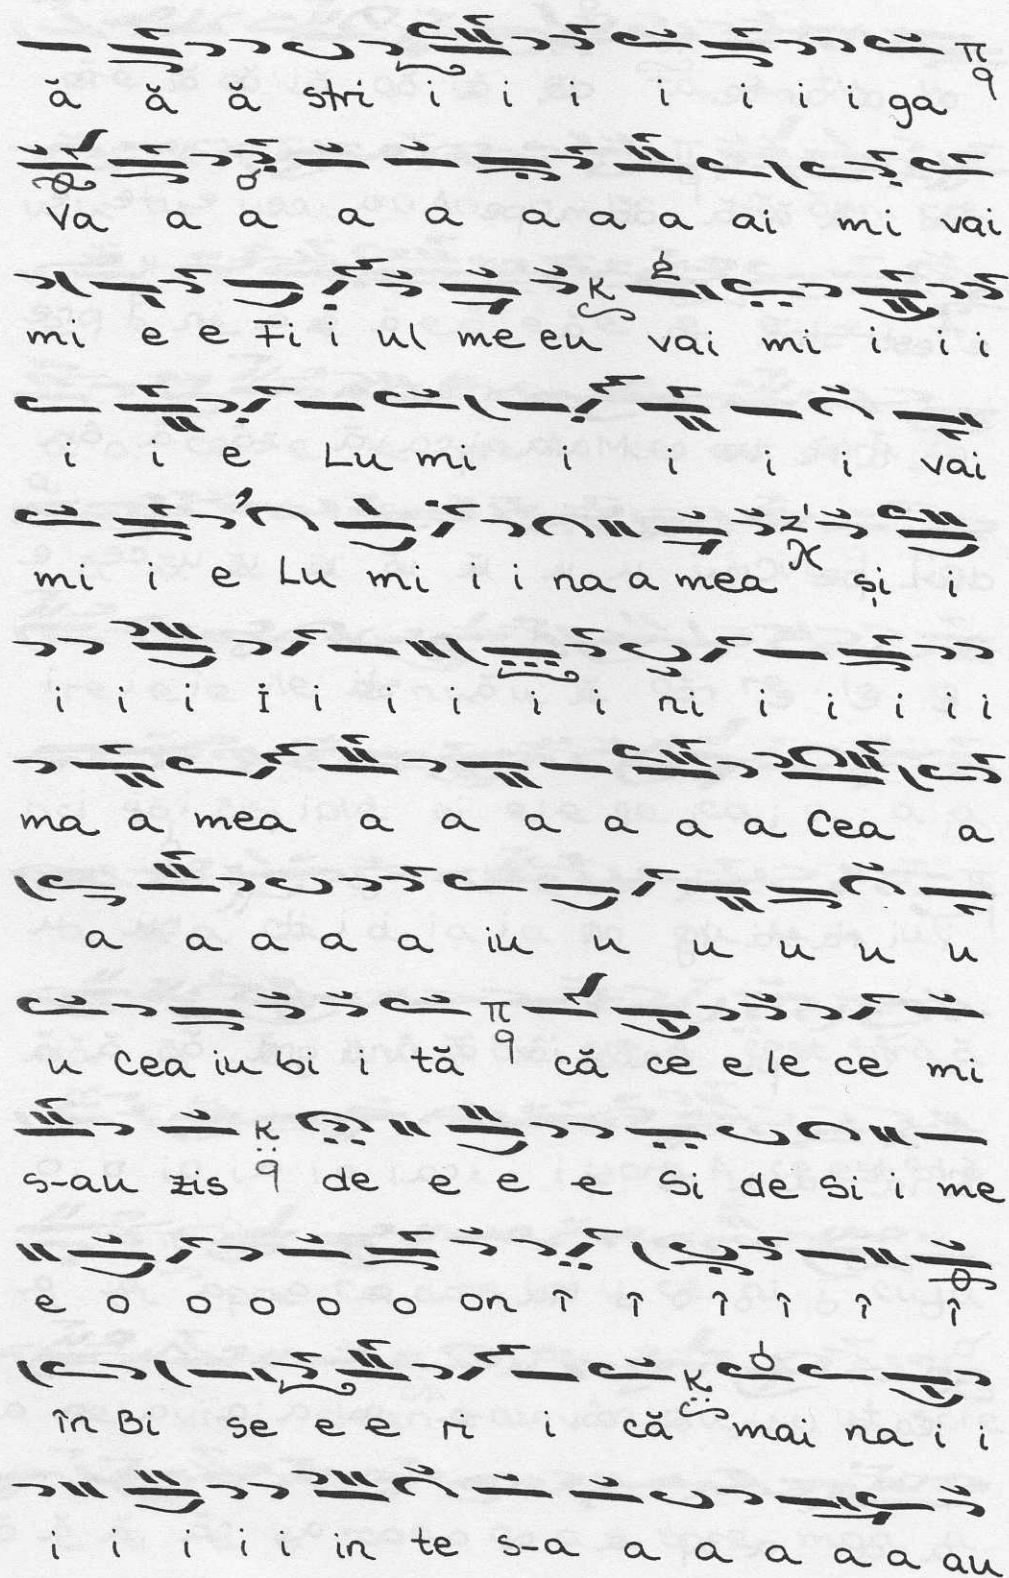 ă ă ă stri i i i i i i i ga
Va a a a a a a a ai mi vai
mi e e Fi i ul me eu vai mi i i i
i i e Lu mi i i i i vai
mi i e Lu mi i i na a mea și i
i i i i i i i i i ni i i i i i
ma a mea a a a a a a Cea a
a a a a a iu u u u u u
u Cea iu bi i tă că ce e le ce mi
s-au zis de e e e Si de Si i me
e o o o o o on î î î î î î
în Bi se e e ri i că mai na i i
i i i i i in te s-a a a a a a au